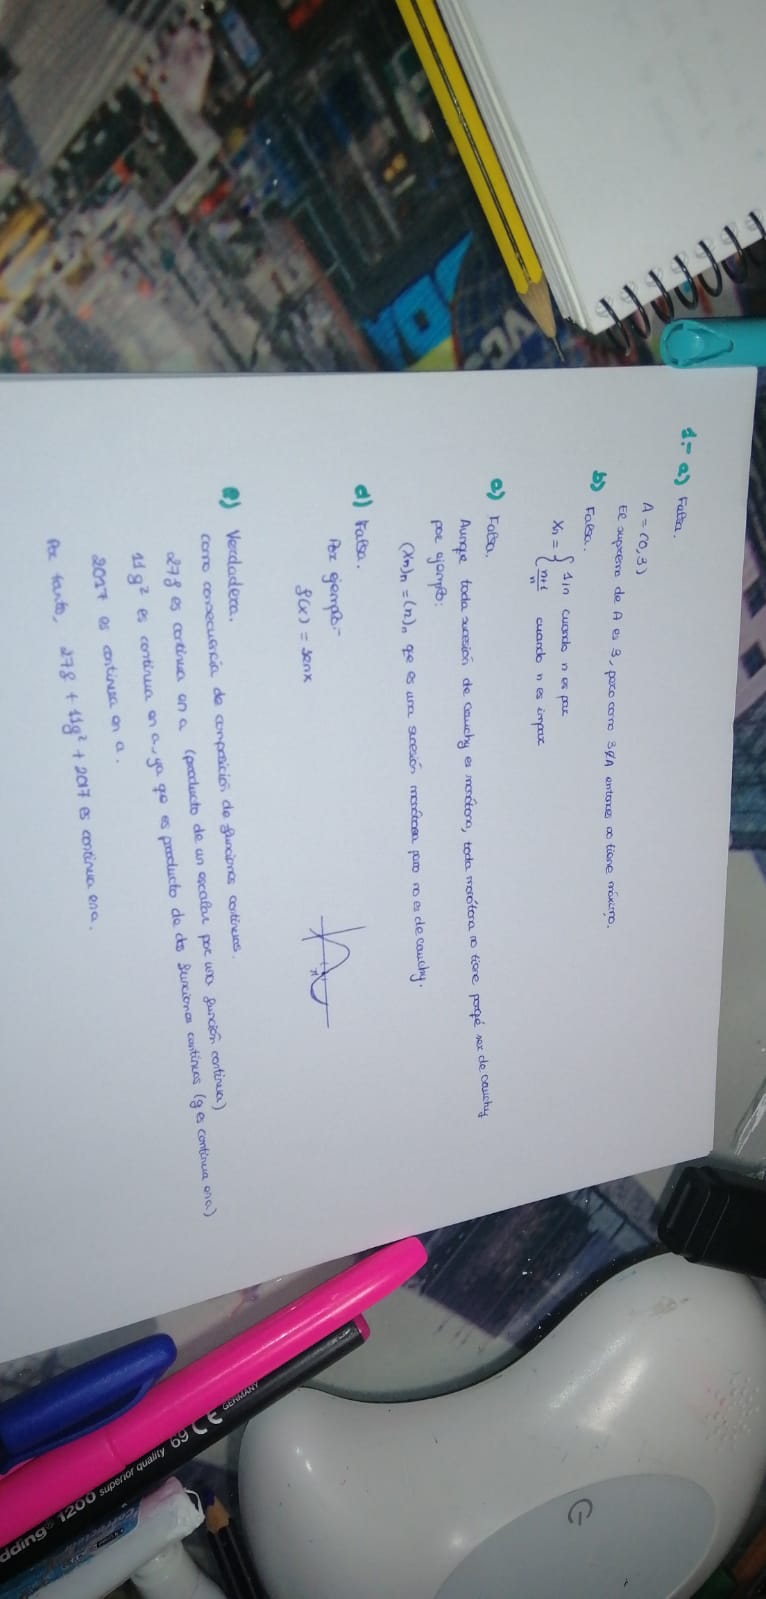 1.- a) Falsa.
A = (0,3)
El supremo de A es 3, pero como 3∉A entonces no tiene máximo.
b) Falsa.
Xn = { 1/n cuando n es par
n+1/n cuando n es impar
c) Falsa.
Aunque toda sucesión de Cauchy es monótona, toda monótona no tiene porqé ser de cauchy
por ejemplo:
(Xn)n = (n)n qe es una sucesión monótona pero no es de cauchy.
d) Falsa.
Por ejemplo:-
f(x) = senx
π
e) Verdadera.
como consecuencia de composición de funciones continuas.
27f es continua en a (producto de un escalar por una función continua)
11g² es continua en a, ya qe es producto de dos funciones continuas (g es continua en a)
2017 es continua en a.
Por tanto, 27f + 11g² + 2017 es continua en a.
GERMANY
1200 superior quality 69